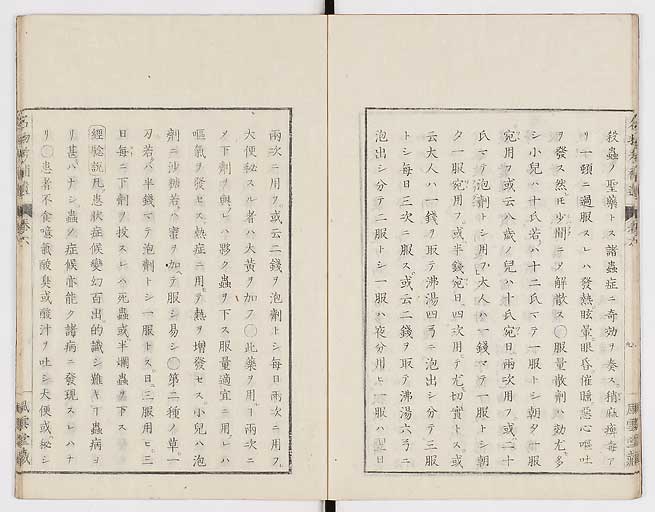 殺蟲ノ聖藥トス諸蟲症ニ奇効ヲ奏ス稍麻痺毒ア
リ一頓ニ過服スレハ發熱眩暈眼昏催睡惡心嘔吐
ヲ發ス然𪜈少間ニノ解散ス〇服量散劑ハ効尤多
シ小兒ハ十氏若ハ十二氏マテ一服トシ朝夕一服
宛用フ或云八歳ノ兒ハ十氏宛日兩次用フ或二十
氏マテ泡劑トシ用フ大人ハ一錢マテ一服トシ朝
夕一服宛用フ或半錢宛日四次用テ尤切實トス或
云大人ハ一錢ヲ取テ沸湯四弓ニ泡出シ分テ三服
トシ毎日三次ニ服ス或云二錢ヲ取テ沸湯六弓ニ
泡出シ分テ二服トシ一服ハ夜分用ヒ一服ハ翌日
兩次ニ用フ或云二錢ヲ泡劑トシ毎日兩次ニ用フ
大便秘スル者ハ大黄ヲ加フ〇此藥ヲ用ヿ兩次ニ
ノ下劑ヲ與フハ夥ク蟲ヲ下ス服量適宜ニ用レハ
嘔氣ヲ發セス熱症ニ用テ熱ヲ増發セス小兒ハ泡
劑ニ沙糖若ハ蜜ヲ加テ服シ易シ〇第二種ノ草一
刃若ハ半錢マテ泡劑トシ一服トス日三服用ヒ三
日毎ニ下劑ヲ投スレハ死蟲或半爛蟲ヲ下ス
經驗説凡患状症候變幻百出的識シ難キヿ蟲病ヨ
リ甚ハナシ蟲ノ症候亦能ク諸病ニ發現スレハナ
リ〇患者不食噫氣酸臭或酸汁ヲ吐シ大便或秘シ
風雲堂藏
風雲堂藏